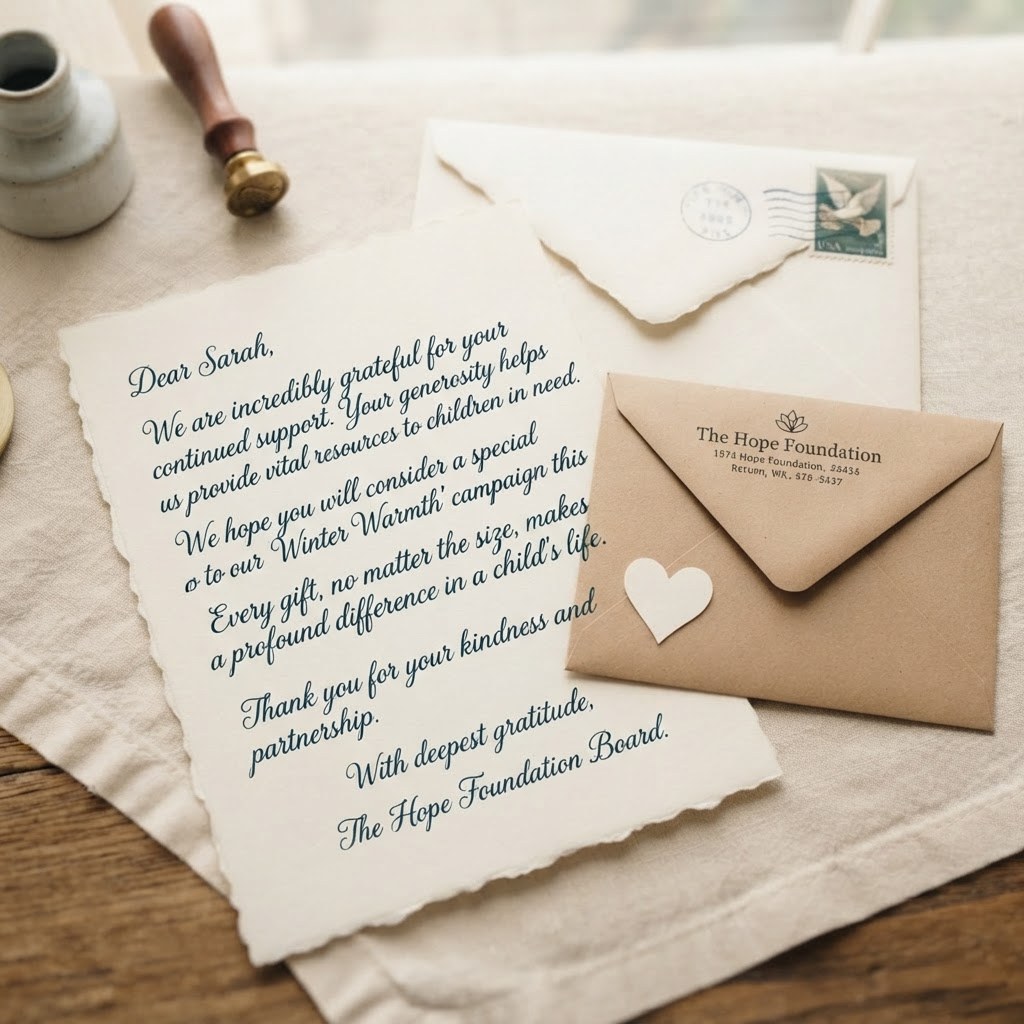 Dear Sarah,
We are incredibly grateful for your
continued support. Your generosity helps
us provide vital resources to children in need.
We hope you will consider a special
to our 'Winter Warmth' campaign this
Every gift, no matter the size, makes
a profound difference in a child's life.
Thank you for your kindness and
partnership.
With deepest gratitude,
The Hope Foundation Board.
USA
The Hope Foundation
Hope Foundation,